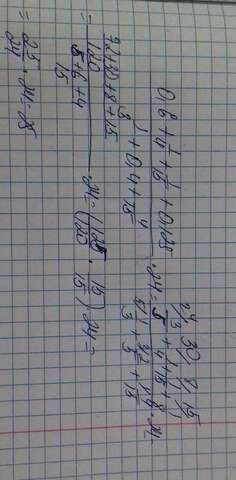 (0,6 + 1/4 + 1/15 + 0,125) / (1/3 + 0,4 + 4/15) · 24 = (3/5 + 1/4 + 1/15 + 1/8) / (1/3 + 2/5 + 4/15) · 24
= ((72+30+8+15)/120) / ((5+6+4)/15) · 24 = (125/120 · 15/15) 24 =
= 25/24 · 24 = 25